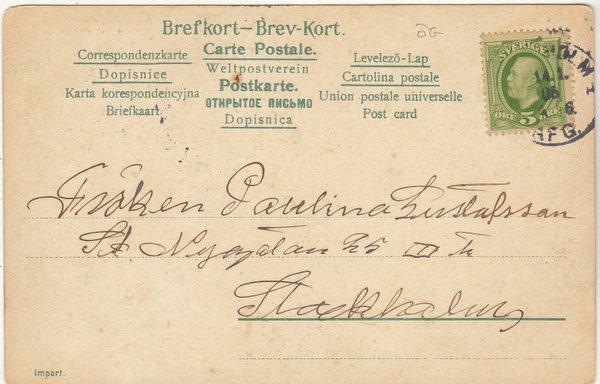 Brefkort–Brev-Kort.
Correspondenzkarte
Dopisnice
Karta korespondencyjna
Briefkaart
Carte Postale.
Weltpostverein
Postkarte.
ОТКРЫТОЕ ПИСЬМО
Dopisnica
Levelező-Lap
Cartolina postale
Union postale universelle
Post card
SVERIGE
ÖRE 5 ÖRE
Fröken Paulina Gustafsson
St. Nygatan 25 III Tr
Stockholm
Import.